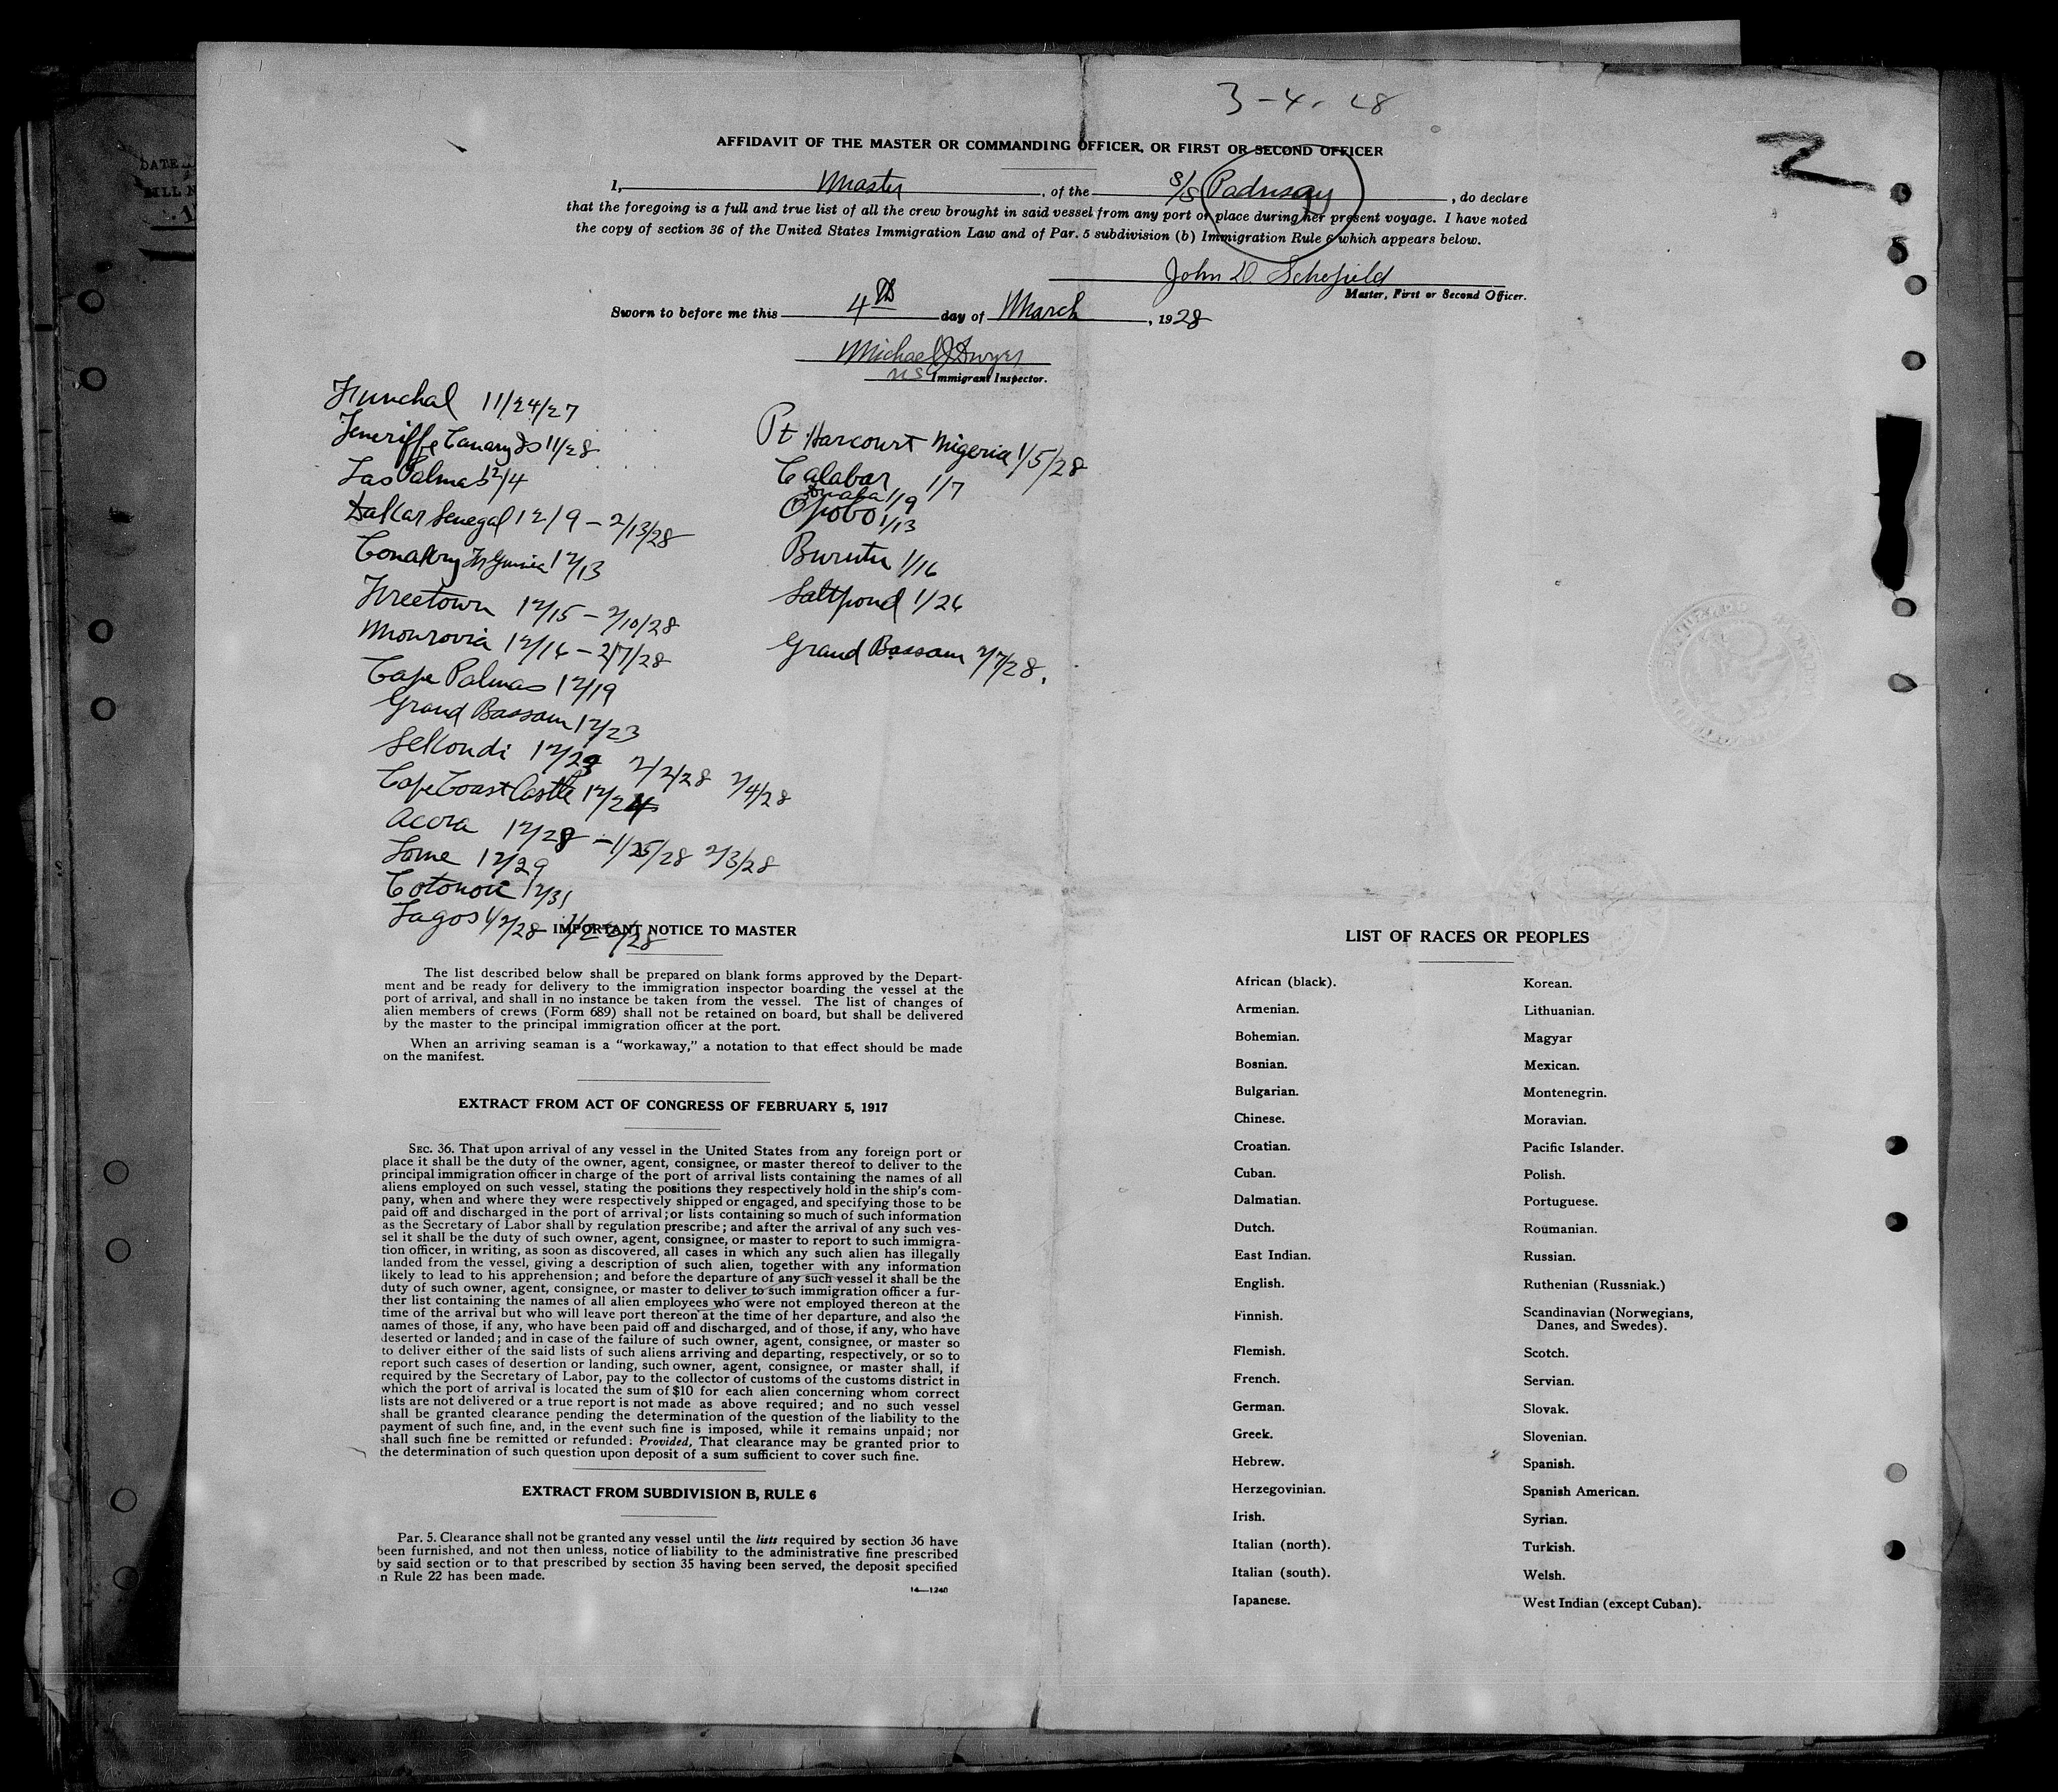 3-4. 28
2
AFFIDAVIT OF THE MASTER OR COMMANDING OFFICER, OR FIRST OR SECOND OFFICER
I, Master, of the S/S Padnsay, do declare
that the foregoing is a full and true list of all the crew brought in said vessel from any port or place during her present voyage. I have noted
the copy of section 36 of the United States Immigration Law and of Par. 5 subdivision (b) Immigration Rule 6 which appears below.
John D. Schofield
Master, First or Second Officer.
Sworn to before me this 4th day of March, 1928
Michael J Dwyer
US Immigrant Inspector.
Funchal 11/24/27
Teneriffe Canary Is 11/28
Las Palmas 12/4
Dakar Senegal 12/9 - 2/13/28
Conakry Fr Guinea 12/13
Freetown 12/15 - 2/10/28
Monrovia 12/16 - 2/7/28
Cape Palmas 12/19
Grand Bassam 12/23
Sekondi 12/23 2/2/28 2/4/28
Cape Coast Castle 12/24
Accra 12/28 - 1/25/28 2/3/28
Lome 12/29
Cotonou 12/31
Lagos 1/2/28
Pt Harcourt Nigeria 1/5/28
Calabar 1/7
1/9
Opobo 1/13
Burutu 1/16
Saltpond 1/26
Grand Bassam 2/7/28.
IMPORTANT NOTICE TO MASTER
The list described below shall be prepared on blank forms approved by the Depart-
ment and be ready for delivery to the immigration inspector boarding the vessel at the
port of arrival, and shall in no instance be taken from the vessel. The list of changes of
alien members of crews (Form 689) shall not be retained on board, but shall be delivered
by the master to the principal immigration officer at the port.
When an arriving seaman is a "workaway," a notation to that effect should be made
on the manifest.
EXTRACT FROM ACT OF CONGRESS OF FEBRUARY 5, 1917
SEC. 36. That upon arrival of any vessel in the United States from any foreign port or
place it shall be the duty of the owner, agent, consignee, or master thereof to deliver to the
principal immigration officer in charge of the port of arrival lists containing the names of all
aliens employed on such vessel, stating the positions they respectively hold in the ship's com-
pany, when and where they were respectively shipped or engaged, and specifying those to be
paid off and discharged in the port of arrival; or lists containing so much of such information
as the Secretary of Labor shall by regulation prescribe; and after the arrival of any such ves-
sel it shall be the duty of such owner, agent, consignee, or master to report to such immigra-
tion officer, in writing, as soon as discovered, all cases in which any such alien has illegally
landed from the vessel, giving a description of such alien, together with any information
likely to lead to his apprehension; and before the departure of any such vessel it shall be the
duty of such owner, agent, consignee, or master to deliver to such immigration officer a fur-
ther list containing the names of all alien employees who were not employed thereon at the
time of the arrival but who will leave port thereon at the time of her departure, and also the
names of those, if any, who have been paid off and discharged, and of those, if any, who have
deserted or landed; and in case of the failure of such owner, agent, consignee, or master so
to deliver either of the said lists of such aliens arriving and departing, respectively, or so to
report such cases of desertion or landing, such owner, agent, consignee, or master shall, if
required by the Secretary of Labor, pay to the collector of customs of the customs district in
which the port of arrival is located the sum of $10 for each alien concerning whom correct
lists are not delivered or a true report is not made as above required; and no such vessel
shall be granted clearance pending the determination of the question of the liability to the
payment of such fine, and, in the event such fine is imposed, while it remains unpaid; nor
shall such fine be remitted or refunded: Provided, That clearance may be granted prior to
the determination of such question upon deposit of a sum sufficient to cover such fine.
EXTRACT FROM SUBDIVISION B, RULE 6
Par. 5. Clearance shall not be granted any vessel until the lists required by section 36 have
been furnished, and not then unless, notice of liability to the administrative fine prescribed
by said section or to that prescribed by section 35 having been served, the deposit specified
n Rule 22 has been made.
14—1240
LIST OF RACES OR PEOPLES
African (black).
Armenian.
Bohemian.
Bosnian.
Bulgarian.
Chinese.
Croatian.
Cuban.
Dalmatian.
Dutch.
East Indian.
English.
Finnish.
Flemish.
French.
German.
Greek.
Hebrew.
Herzegovinian.
Irish.
Italian (north).
Italian (south).
Japanese.
Korean.
Lithuanian.
Magyar
Mexican.
Montenegrin.
Moravian.
Pacific Islander.
Polish.
Portuguese.
Roumanian.
Russian.
Ruthenian (Russniak.)
Scandinavian (Norwegians,
Danes, and Swedes).
Scotch.
Servian.
Slovak.
Slovenian.
Spanish.
Spanish American.
Syrian.
Turkish.
Welsh.
West Indian (except Cuban).